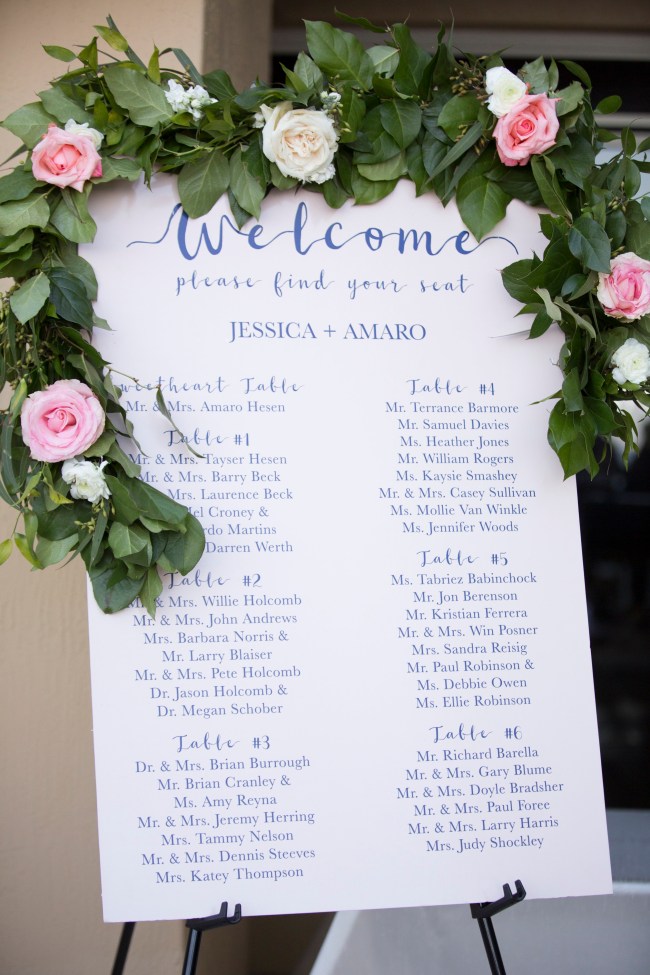 Welcome
please find your seat
JESSICA + AMARO
weetheart Table
Mr. & Mrs. Amaro Hesen
Table #1
Mr. & Mrs. Tayser Hesen
& Mrs. Barry Beck
Mrs. Laurence Beck
Mel Croney &
Martins
Darren Werth
Table #2
& Mrs. Willie Holcomb
Mr. & Mrs. John Andrews
Mrs. Barbara Norris &
Mr. Larry Blaiser
Mr. & Mrs. Pete Holcomb
Dr. Jason Holcomb &
Dr. Megan Schober
Table #3
Dr. & Mrs. Brian Burrough
Mr. Brian Cranley &
Ms. Amy Reyna
Mr. & Mrs. Jeremy Herring
Mrs. Tammy Nelson
Mr. & Mrs. Dennis Steeves
Mrs. Katey Thompson
Table #4
Mr. Terrance Barmore
Mr. Samuel Davies
Ms. Heather Jones
Mr. William Rogers
Ms. Kaysie Smashey
Mr. & Mrs. Casey Sullivan
Ms. Mollie Van Winkle
Ms. Jennifer Woods
Table #5
Ms. Tabriez Babinchock
Mr. Jon Berenson
Mr. Kristian Ferrera
Mr. & Mrs. Win Posner
Mrs. Sandra Reisig
Mr. Paul Robinson &
Ms. Debbie Owen
Ms. Ellie Robinson
Table #6
Mr. Richard Barella
Mr. & Mrs. Gary Blume
Mr. & Mrs. Doyle Bradsher
Mr. & Mrs. Paul Foree
Mr. & Mrs. Larry Harris
Mrs. Judy Shockley